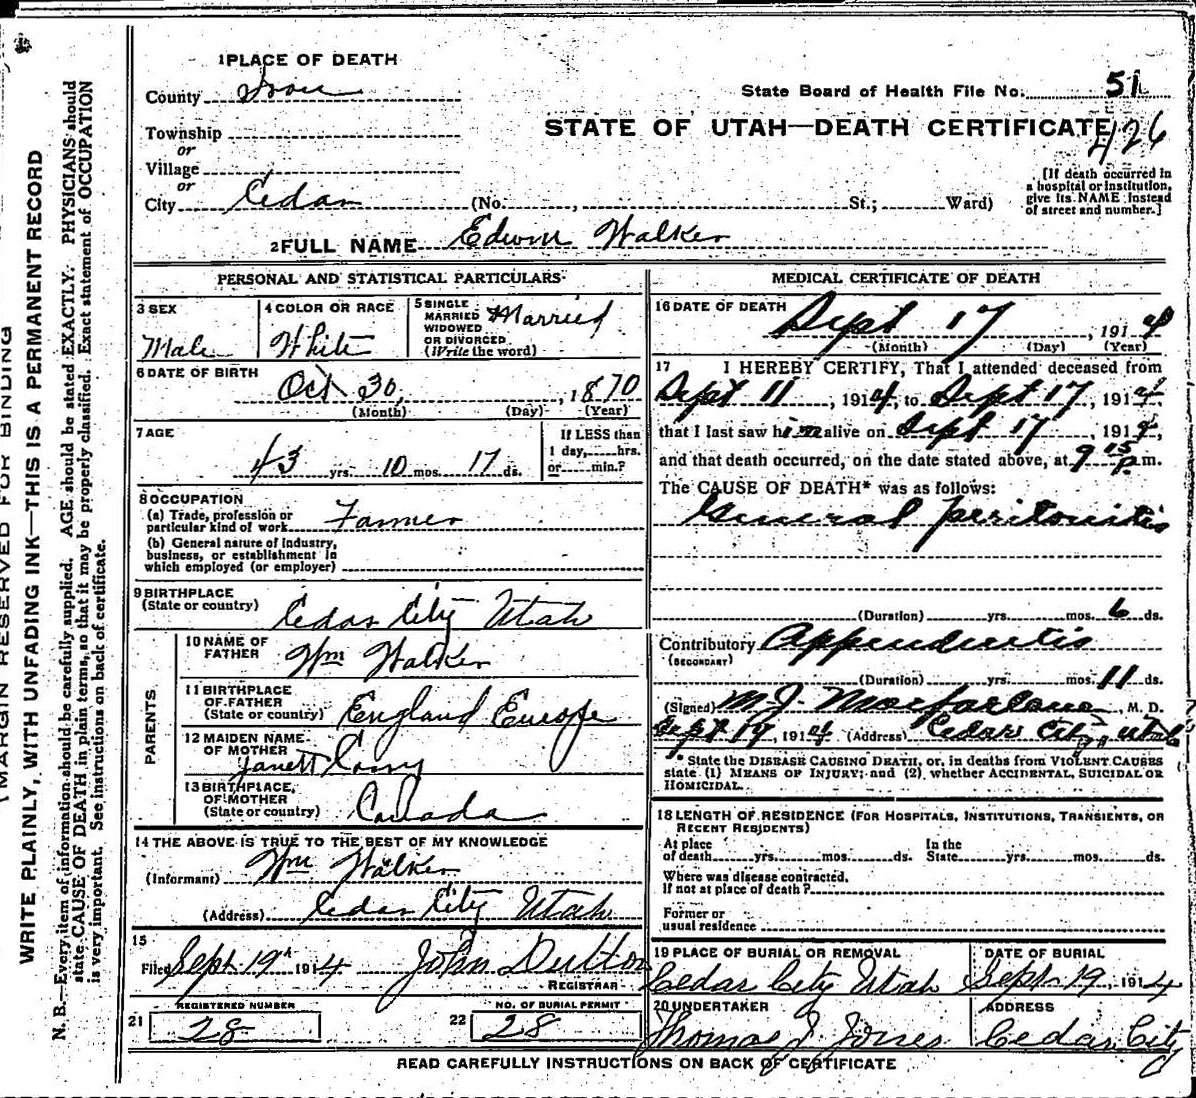 1 PLACE OF DEATH
County Iron
State Board of Health File No. 51
Township
STATE OF UTAH—DEATH CERTIFICATE 426
or
Village
or
City Cedar (No. , St.; Ward)
[If death occurred in
a hospital or institution,
give its NAME instead
of street and number.]
2 FULL NAME Edwin Walker
PERSONAL AND STATISTICAL PARTICULARS
3 SEX
Male
4 COLOR OR RACE
White
5 SINGLE
MARRIED
WIDOWED
OR DIVORCED
(Write the word)
Married
6 DATE OF BIRTH
Oct 30, , 1870
(Month) (Day) (Year)
7 AGE
43 yrs. 10 mos. 17 ds.
If LESS than
1 day, hrs.
or min.?
8 OCCUPATION
(a) Trade, profession or
particular kind of work Farmer
(b) General nature of industry,
business, or establishment in
which employed (or employer)
9 BIRTHPLACE
(State or country) Cedar City Utah
PARENTS
10 NAME OF
FATHER Wm Walker
11 BIRTHPLACE
OF FATHER
(State or country) England Europe
12 MAIDEN NAME
OF MOTHER
Janett
13 BIRTHPLACE
OF MOTHER
(State or country) Canada
14 THE ABOVE IS TRUE TO THE BEST OF MY KNOWLEDGE
(Informant) Wm Walker
(Address) Cedar City Utah
15
Filed Sept 19th 1914 John Dutton
REGISTRAR
REGISTERED NUMBER
21 28
NO. OF BURIAL PERMIT
22 28
MEDICAL CERTIFICATE OF DEATH
16 DATE OF DEATH
Sept 17 , 1914
(Month) (Day) (Year)
17 I HEREBY CERTIFY, That I attended deceased from
Sept 11 , 1914, to Sept 17 , 1914
that I last saw him alive on Sept 17 , 1914,
and that death occurred, on the date stated above, at 9 15 P. m.
The CAUSE OF DEATH* was as follows:
General peritonitis
(Duration) yrs. mos. 6 ds.
Contributory Appendicitis
(SECONDARY)
(Duration) yrs. mos. 11 ds.
(Signed) M. J. Macfarlane , M. D.
Sept , 1914 (Address) Cedar City, Utah
* State the DISEASE CAUSING DEATH, or, in deaths from VIOLENT CAUSES
state (1) MEANS OF INJURY; and (2) whether ACCIDENTAL, SUICIDAL OR
HOMICIDAL.
18 LENGTH OF RESIDENCE (FOR HOSPITALS, INSTITUTIONS, TRANSIENTS, OR
RECENT RESIDENTS)
At place
of death yrs. mos. ds.
In the
State yrs. mos. ds.
Where was disease contracted.
If not at place of death?
Former or
usual residence
19 PLACE OF BURIAL OR REMOVAL
Cedar City Utah
DATE OF BURIAL
Sept 19 , 1914
20 UNDERTAKER
Thomas J. Jones
ADDRESS
Cedar City
READ CAREFULLY INSTRUCTIONS ON BACK OF CERTIFICATE
(MARGIN RESERVED FOR BINDING
WRITE PLAINLY, WITH UNFADING INK—THIS IS A PERMANENT RECORD
N. B.—Every item of information should be carefully supplied. AGE should be stated EXACTLY. PHYSICIANS should
state CAUSE OF DEATH in plain terms, so that it may be properly classified. Exact statement of OCCUPATION
is very important. See instructions on back of certificate.